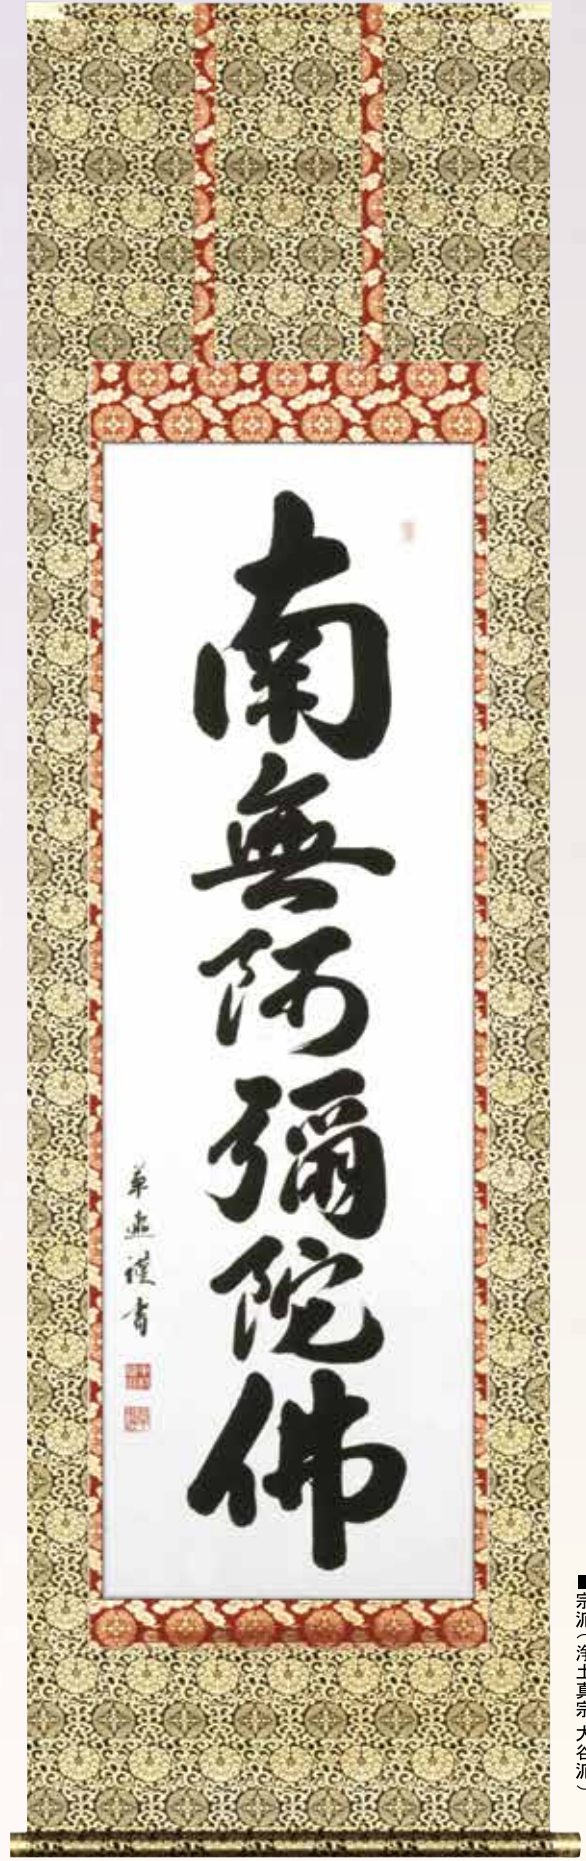 南無阿彌陀佛
謹書
■宗派(浄土真宗 大谷派)